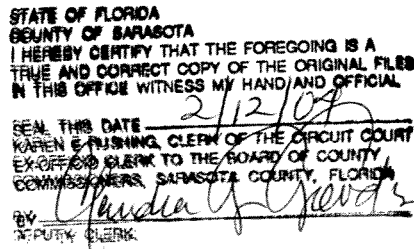 STATE OF FLORIDA
COUNTY OF SARASOTA
I HEREBY CERTIFY THAT THE FOREGOING IS A
TRUE AND CORRECT COPY OF THE ORIGINAL FILES
IN THIS OFFICE WITNESS MY HAND AND OFFICIAL
SEAL THIS DATE 2/12/04
KAREN E RUSHING, CLERK OF THE CIRCUIT COURT
EX-OFFICIO CLERK TO THE BOARD OF COUNTY
COMMISSIONERS, SARASOTA COUNTY, FLORIDA
BY
DEPUTY CLERK